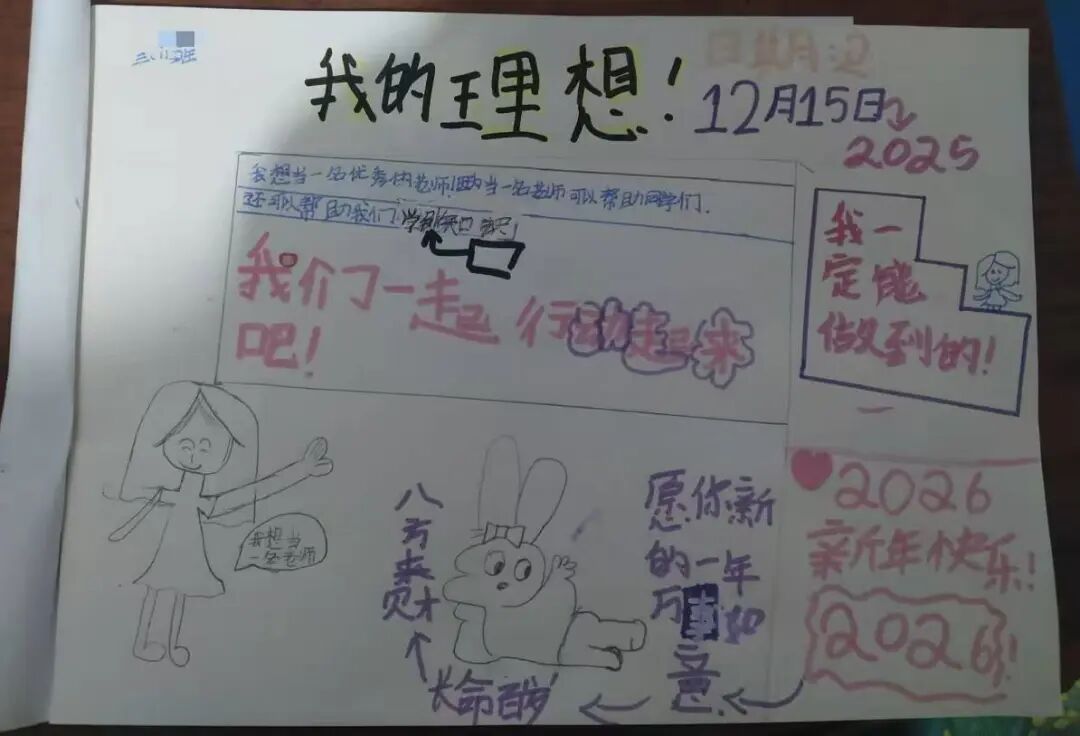 三(1)班
我的理想!
12月15日
2025
我想当一名优秀的老师!因为当一名老师可以帮助同学们.
还可以帮助我们学到知识!
我们一起行动起来
吧!
我一
定能
做到的!
我想当
一名老师
八方来财
长命百岁
愿你新
的一年
万事如
意
2026
新年快乐!
2026!